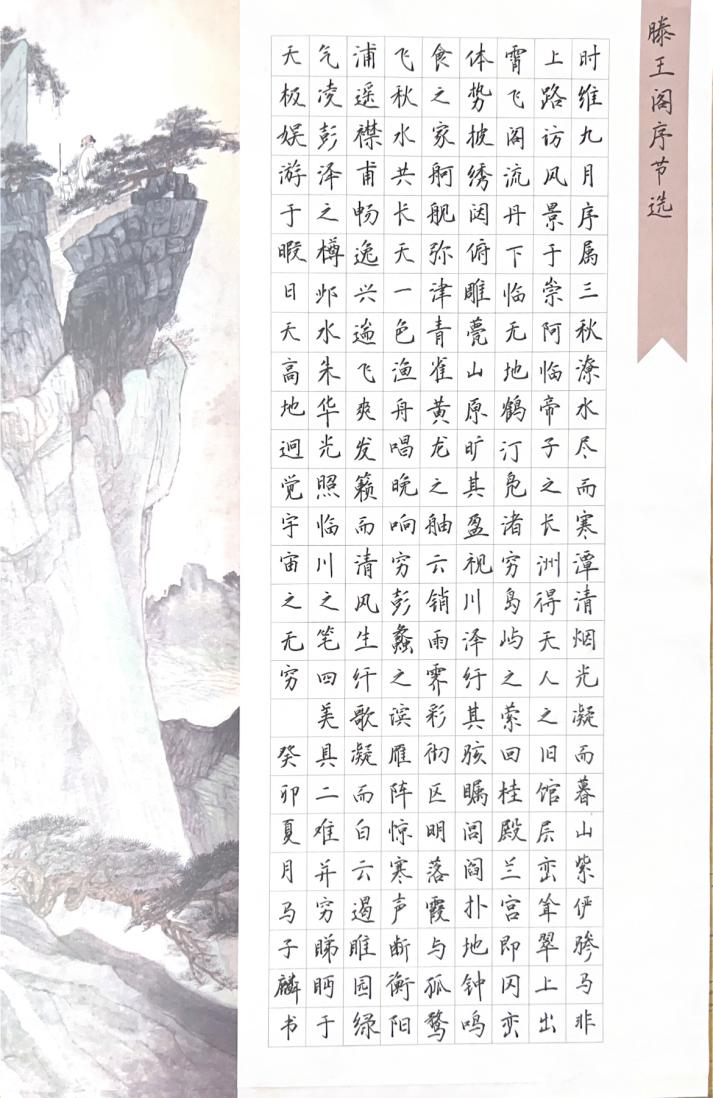 滕王阁序节选
时维九月序属三秋潦水尽而寒潭清烟光凝而暮山紫俨骖马非
上路访风景于崇阿临帝子之长洲得天人之旧馆层峦耸翠上出
霄飞阁流丹下临无地鹤汀凫渚穷岛屿之萦回桂殿兰宫即冈峦
体势披绣闼俯雕甍山原旷其盈视川泽纡其骇瞩闾阎扑地钟鸣
食之家舸舰弥津青雀黄龙之舳云销雨霁彩彻区明落霞与孤鹜
飞秋水共长天一色渔舟唱晚响穷彭蠡之滨雁阵惊寒声断衡阳
浦遥襟甫畅逸兴遄飞爽发籁而清风生纤歌凝而白云遏睢园绿
气凌彭泽之樽邺水朱华光照临川之笔四美具二难并穷睇眄于
天极娱游于暇日天高地迥觉宇宙之无穷 癸卯夏月马子麟书